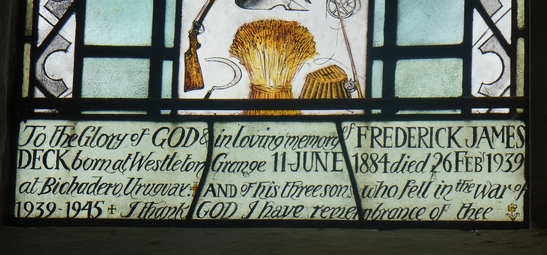 To the Glory of GOD & in loving memory of FREDERICK JAMES
DECK born at Westleton Grange 11 JUNE 1884 died 26 FEBY 1939
at Bichadero, Uruguay + AND of his three sons who fell in the war of
1939-1945 + I thank GOD I have remembrance of thee